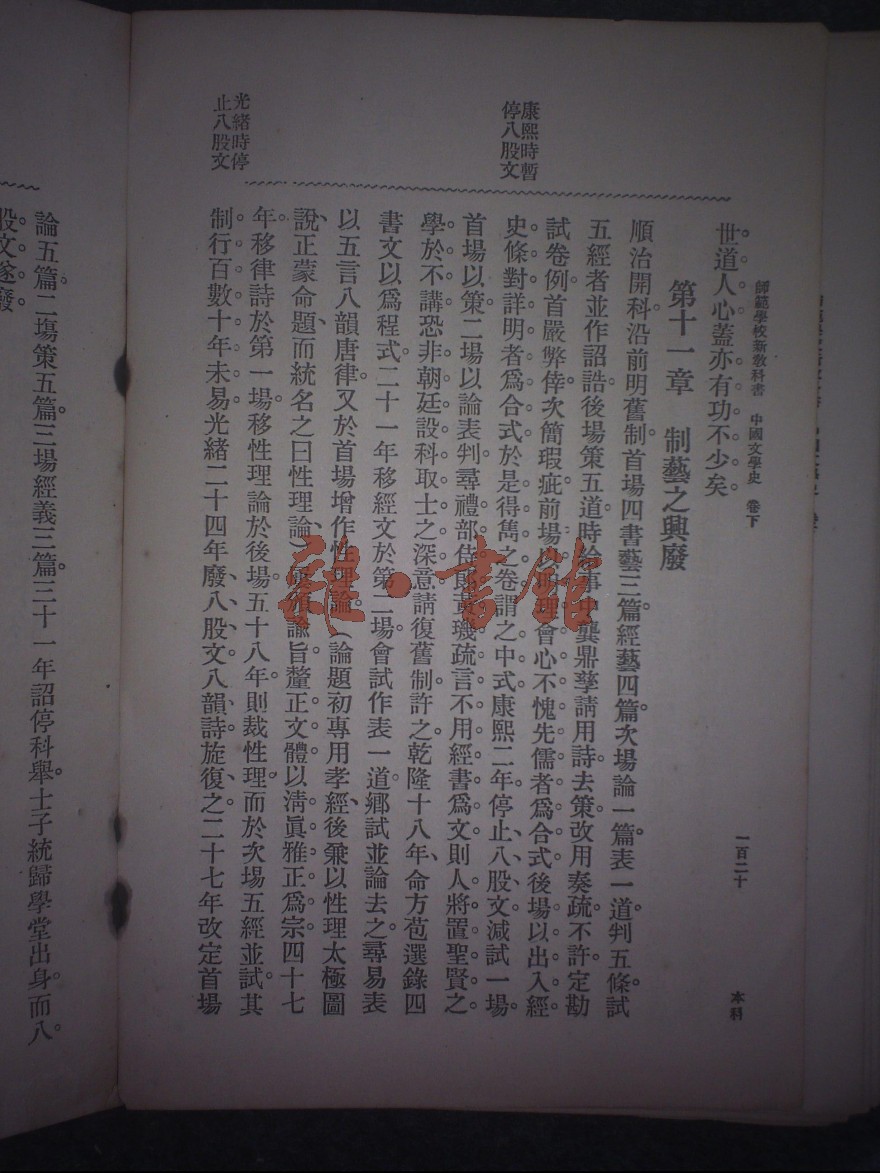 師範學校新敎科書 中國文學史 卷下
一百二十
本科
世道人心蓋亦有功不少矣
第十一章 制藝之興廢
順治開科沿前明舊制首場四書藝三篇經藝四篇次場論一篇表一道判五條試
五經者並作詔誥後場策五道時給事中龔鼎孳請用詩去策改用奏疏不許定勘
試卷例首嚴弊倖次簡瑕疵前場以明理會心不愧先儒者爲合式後場以出入經
史條對詳明者爲合式於是得雋之卷謂之中式康熙二年停止八股文減試一場
首場以策二場以論表判尋禮部侍郎黃璣疏言不用經書爲文則人將置聖賢之
學於不講恐非朝廷設科取士之深意請復舊制許之乾隆十八年命方苞選錄四
書文以爲程式二十一年移經文於第二場會試作表一道鄉試並論去之尋易表
以五言八韻唐律又於首場增作性理論(論題初專用孝經後兼以性理太極圖
說正蒙命題而統名之曰性理論)屢頒諭旨釐正文體以淸眞雅正爲宗四十七
年移律詩於第一場移性理論於後場五十八年則裁性理而於次場五經並試其
制行百數十年未易光緒二十四年廢八股文八韻詩旋復之二十七年改定首場
康熙時暫
停八股文
光緒時停
止八股文
論五篇二塲策五篇三場經義三篇三十一年詔停科舉士子統歸學堂出身而八
股文遂廢
雜·書館